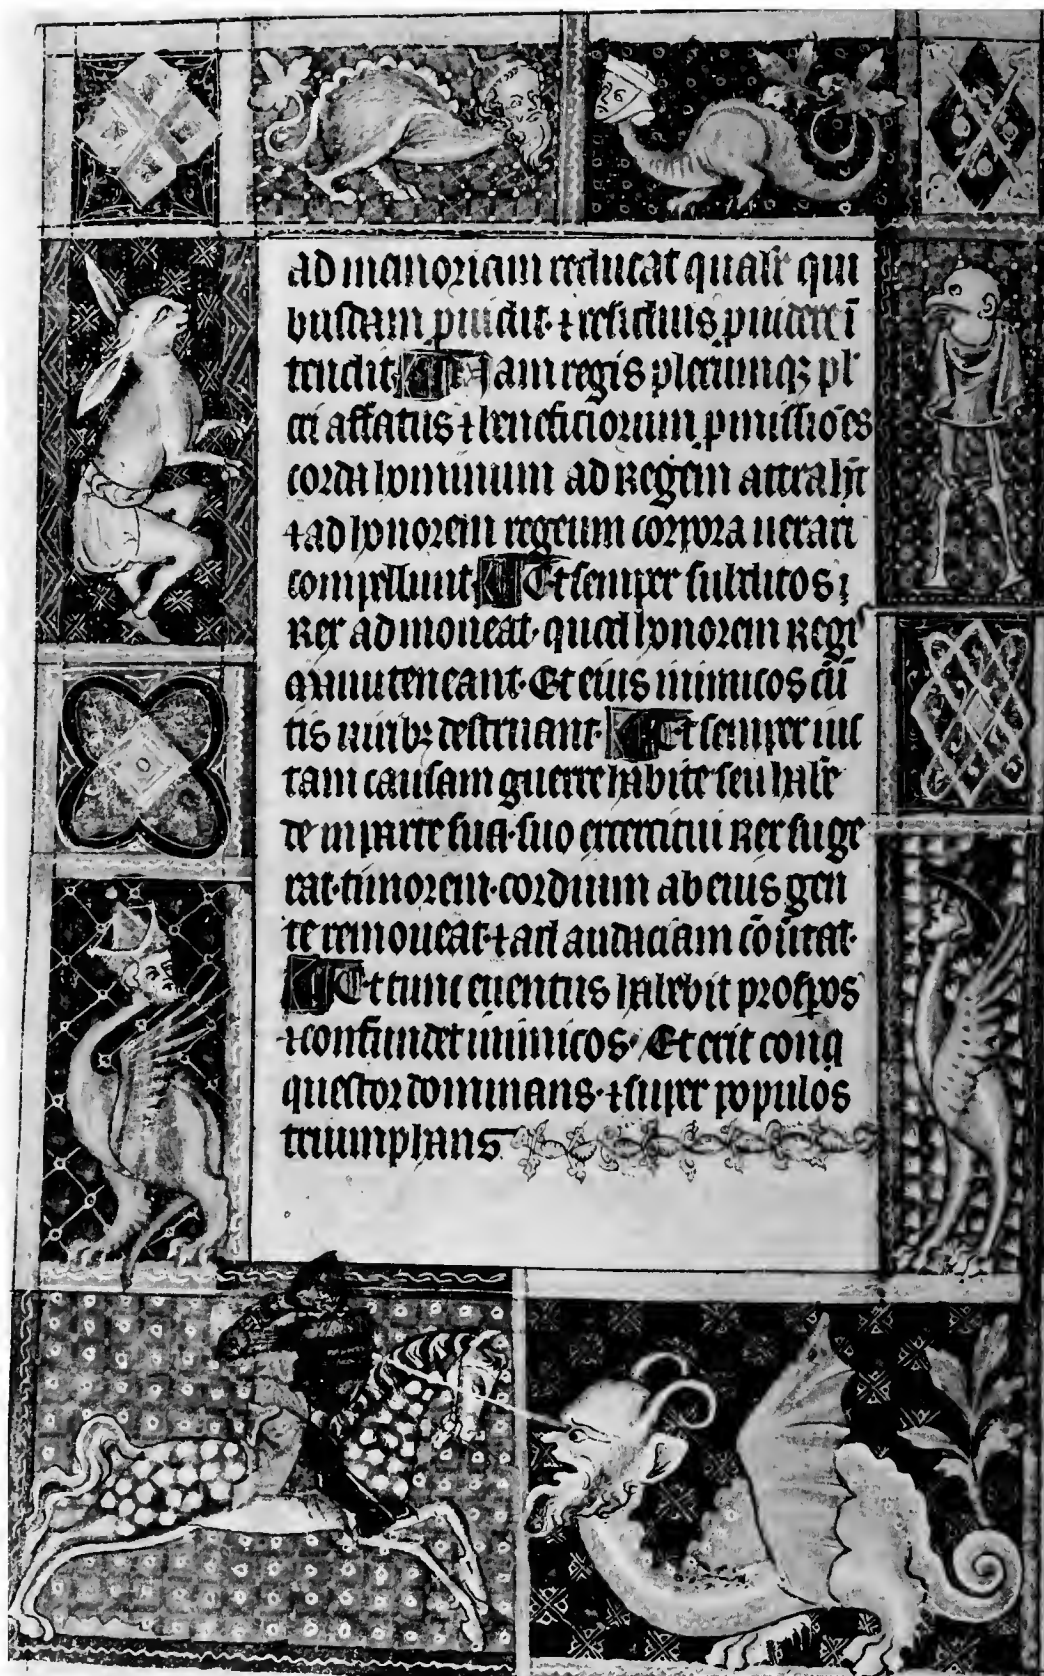 ad memoriam reducat qualr̄ qui
busdam p̱uidit · ⁊ residuis p̱uidere ī
tendit Nam regis pleriumqꝫ pl
ci affatus ⁊ beneficiorum p̱missiōes
corda hominum ad Regem attrahūt
⁊ ad honorem regeum corpora uerari
compellunt · Et semper subditos
Rex admoueat · quod honorem Regi
manuteneant · Et eius inimicos cū
tis uiribꝫ destruant · Et semper ius
tam causam guerre habite seu habē
de in parte sua · suo excercitui Rex suge
rat · timorem · cordium ab eius gen
te remoueat · ⁊ ad audaciam cōūtat ·
Et tunc euentus habebit prosp̱os
⁊ confundet inimicos · Et erit conq
questor dominans · ⁊ super populos
triumphans